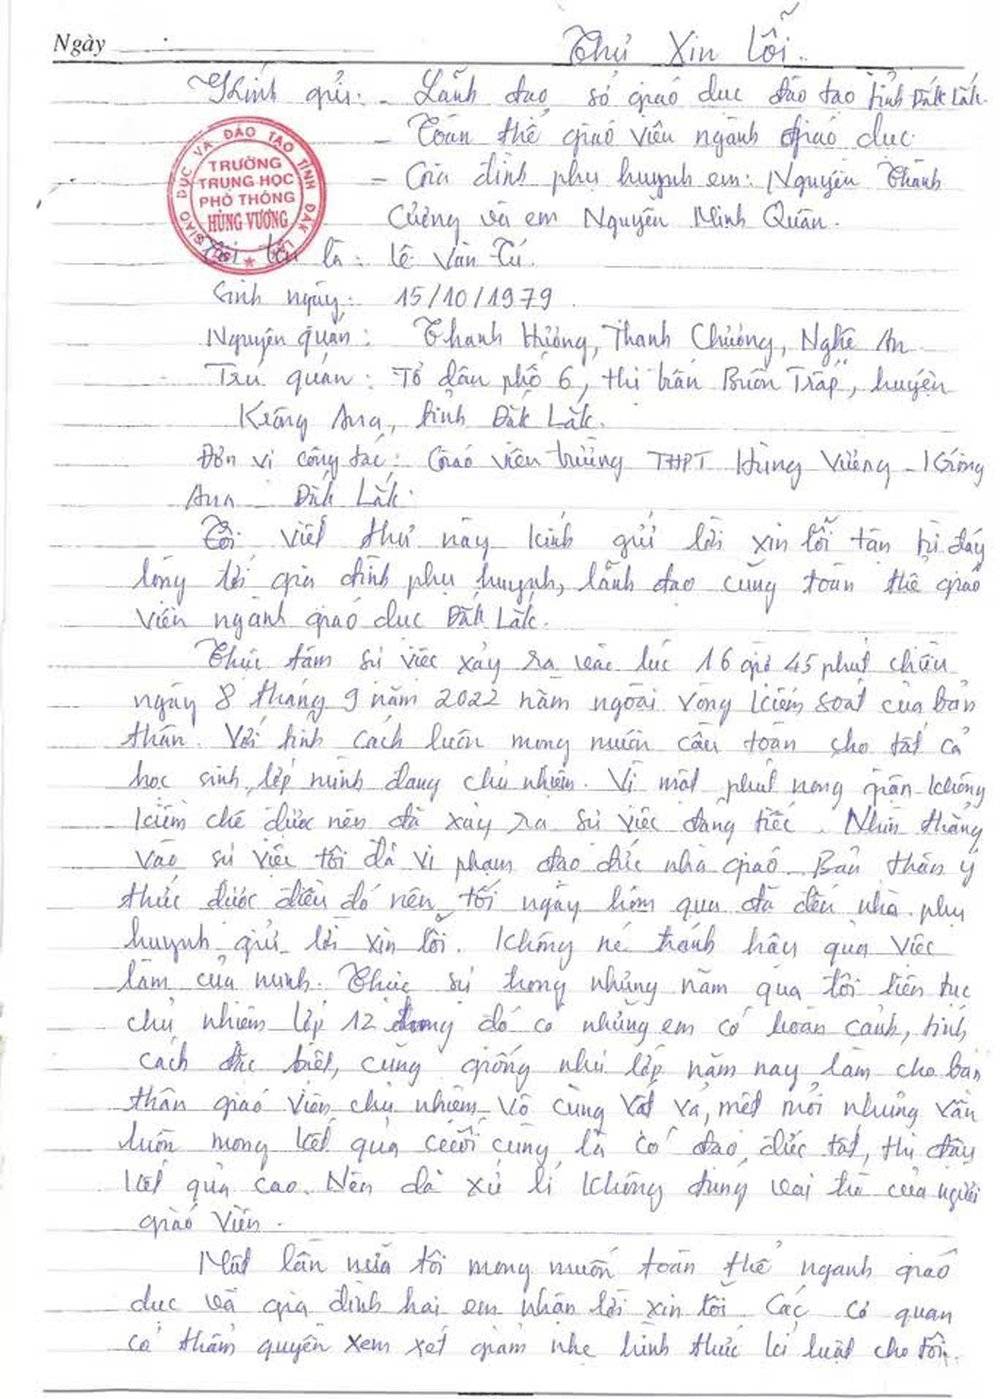 Ngày
Thư Xin Lỗi.
Kính gửi: - Lãnh đạo sở giáo dục đào tạo tỉnh Đắk Lắk.
- Toàn thể giáo viên ngành giáo dục.
- Gia đình phụ huynh em: Nguyễn Thành
Cương và em Nguyễn Minh Quân.
SỞ GIÁO DỤC VÀ ĐÀO TẠO TỈNH ĐẮK LẮK
TRƯỜNG
TRUNG HỌC
PHỔ THÔNG
HÙNG VƯƠNG
Tôi tên là: Lê Văn Tú.
Sinh ngày: 15/10/1979.
Nguyên quán: Thanh Hương, Thanh Chương, Nghệ An
Trú quán: Tổ dân phố 6, thị trấn Buôn Trấp, huyện
Krông Ana, tỉnh Đắk Lắk.
Đơn vị công tác: Giáo viên trường THPT Hùng Vương - Krông
Ana - Đắk Lắk.
Tôi viết thư này kính gửi lời xin lỗi tận từ đáy
lòng tới gia đình phụ huynh, lãnh đạo cùng toàn thể giáo
viên ngành giáo dục Đắk Lắk.
Thực tâm sự việc xảy ra vào lúc 16 giờ 45 phút chiều
ngày 8 tháng 9 năm 2022 nằm ngoài vòng kiểm soát của bản
thân. Với tính cách luôn mong muốn cầu toàn cho tất cả
học sinh lớp mình đang chủ nhiệm. Vì một phút nóng giận không
kiềm chế được nên đã xảy ra sự việc đáng tiếc. Nhìn thẳng
vào sự việc tôi đã vi phạm đạo đức nhà giáo. Bản thân ý
thức được điều đó nên tối ngày hôm qua đã đến nhà phụ
huynh gửi lời xin lỗi. Không né tránh hậu quả việc
làm của mình. Thực sự trong những năm qua tôi liên tục
chủ nhiệm lớp 12 trong đó có những em có hoàn cảnh, tính
cách đặc biệt, cũng giống như lớp năm nay làm cho bản
thân giáo viên chủ nhiệm vô cùng vất vả, mệt mỏi nhưng vẫn
luôn mong kết quả cuối cùng là có đạo đức tốt, thi đậu
kết quả cao. Nên đã xử lí không đúng vai trò của người
giáo viên.
Một lần nữa tôi mong muốn toàn thể ngành giáo
dục và gia đình hai em nhận lời xin lỗi. Các cơ quan
có thẩm quyền xem xét giảm nhẹ hình thức kỉ luật cho tôi.